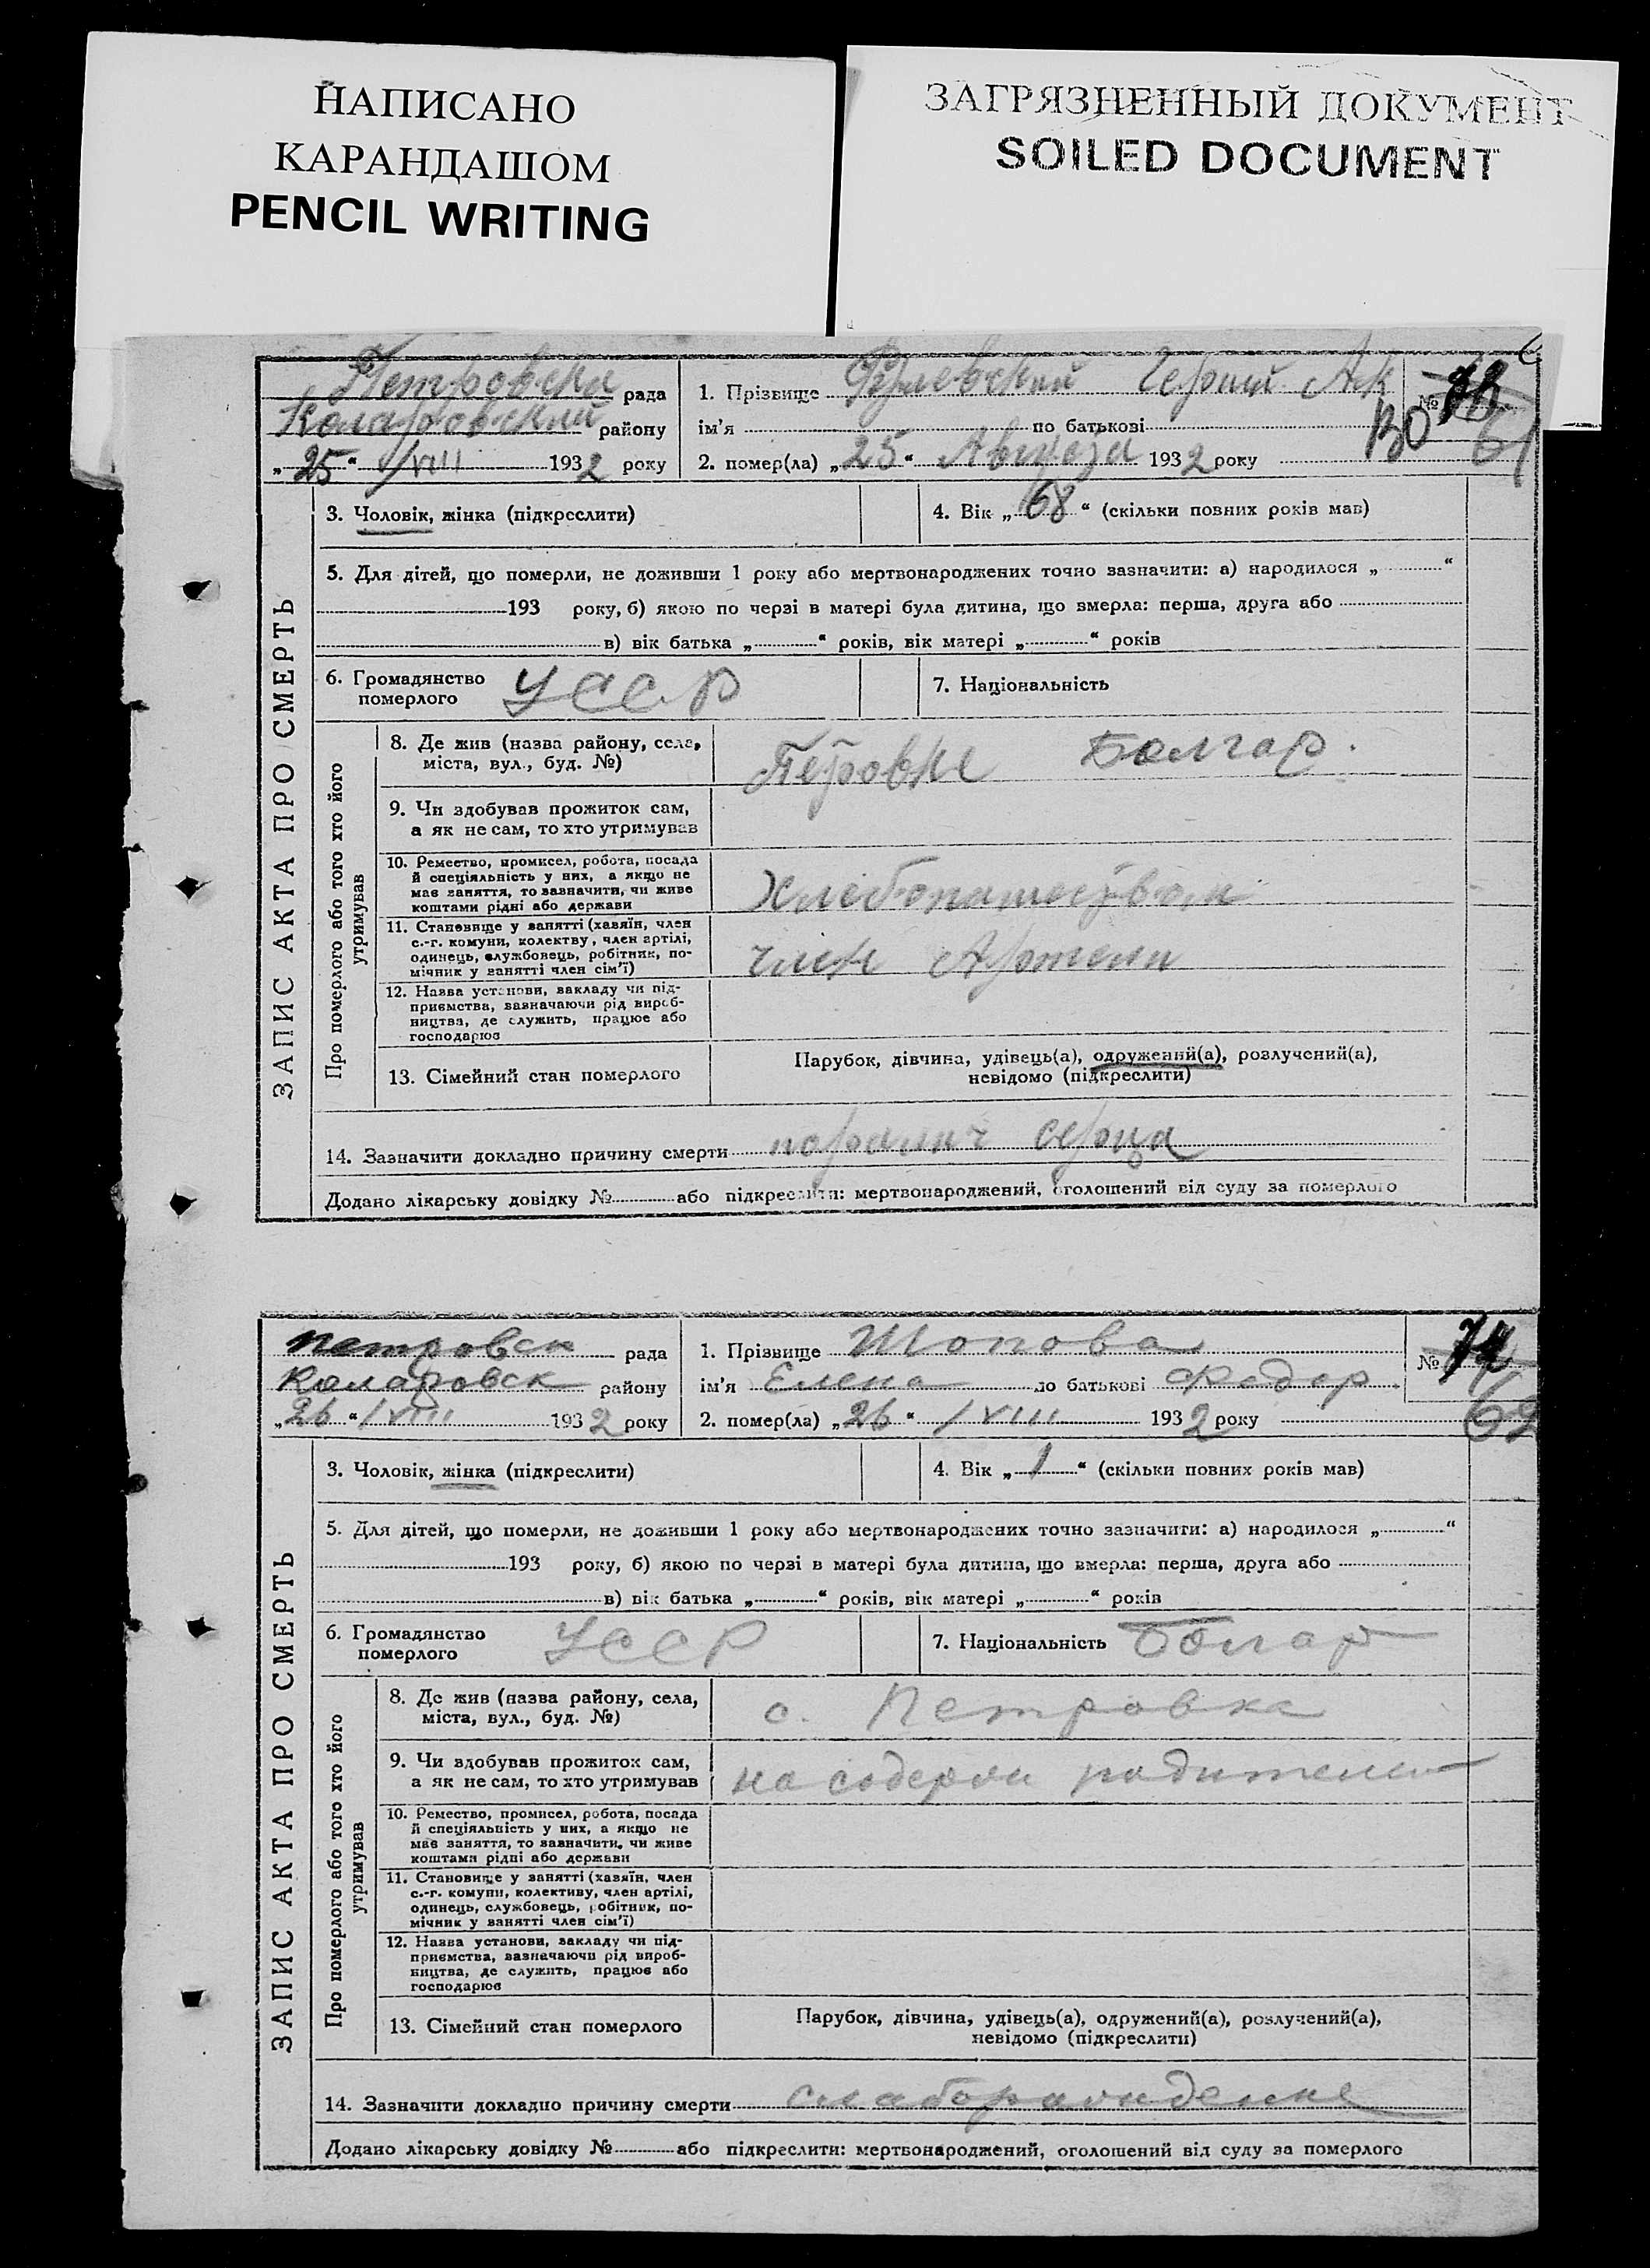 НАПИСАНО
КАРАНДАШОМ
PENCIL WRITING
ЗАГРЯЗНЕННЫЙ ДОКУМЕНТ
SOILED DOCUMENT
ЗАПИС АКТА ПРО СМЕРТЬ
Петровска рада
Коларовский району
„25“ /VIII 1932 року
1. Прізвище
ім'я по батькові
2. помер(ла) „25“ Августа 1932 року
№
61
3. Чоловік, жінка (підкреслити)
4. Вік „68“ (скільки повних років мав)
5. Для дітей, що померли, не доживши 1 року або мертвонароджених точно зазначити: а) народилося „ “
193 року, б) якою по черзі в матері була дитина, що вмерла: перша, друга або
в) вік батька „ “ років, вік матері „ “ років
6. Громадянство
померлого УССР
7. Національність
Болгар.
Про померлого або того хто його
утримував
8. Де жив (назва району, села,
міста, вул., буд. №)
9. Чи здобував прожиток сам,
а як не сам, то хто утримував
10. Ремество, промисел, робота, посада
й спеціяльність у них, а якщо не
має заняття, то зазначити, чи живе
коштами рідні або держави
11. Становище у занятті (хазяїн, член
с.-г. комуни, колектву, член артілі,
одинець, службовець, робітник, по-
мічник у занятті член сім'ї)
член Артели
12. Назва установи, закладу чи під-
приємства, зазначаючи рід вироб-
ництва, де служить, працює або
господарює
13. Сімейний стан померлого
Парубок, дівчина, удівець(а), одружений(а), розлучений(а),
невідомо (підкреслити)
14. Зазначити докладно причину смерти паралич серца
Додано лікарську довідку № або підкреслити: мертвонароджений, оголошений від суду за померлого
ЗАПИС АКТА ПРО СМЕРТЬ
Петровск рада
Коларовск району
„26“ /VIII 1932 року
1. Прізвище Шопова
ім'я Елена по батькові Федор
2. помер(ла) „26“ /VIII 1932 року
№ 74
62
3. Чоловік, жінка (підкреслити)
4. Вік „1“ (скільки повних років мав)
5. Для дітей, що померли, не доживши 1 року або мертвонароджених точно зазначити: а) народилося „ “
193 року, б) якою по черзі в матері була дитина, що вмерла: перша, друга або
в) вік батька „ “ років, вік матері „ “ років
6. Громадянство
померлого УССР
7. Національність
Про померлого або того хто його
утримував
8. Де жив (назва району, села,
міста, вул., буд. №)
с. Петровка
9. Чи здобував прожиток сам,
а як не сам, то хто утримував
на
10. Ремество, промисел, робота, посада
й спеціяльність у них, а якщо не
має заняття, то зазначити, чи живе
коштами рідні або держави
11. Становище у занятті (хазяїн, член
с.-г. комуни, колективу, член артілі,
одинець, службовець, робітник, по-
мічник у занятті член сім'ї)
12. Назва установи, закладу чи під-
приємства, зазначаючи рід вироб-
ництва, де служить, працює або
господарює
13. Сімейний стан померлого
Парубок, дівчина, удівець(а), одружений(а), розлучений(а),
невідомо (підкреслити)
14. Зазначити докладно причину смерти
Додано лікарську довідку № або підкреслити: мертвонароджений, оголошений від суду за померлого